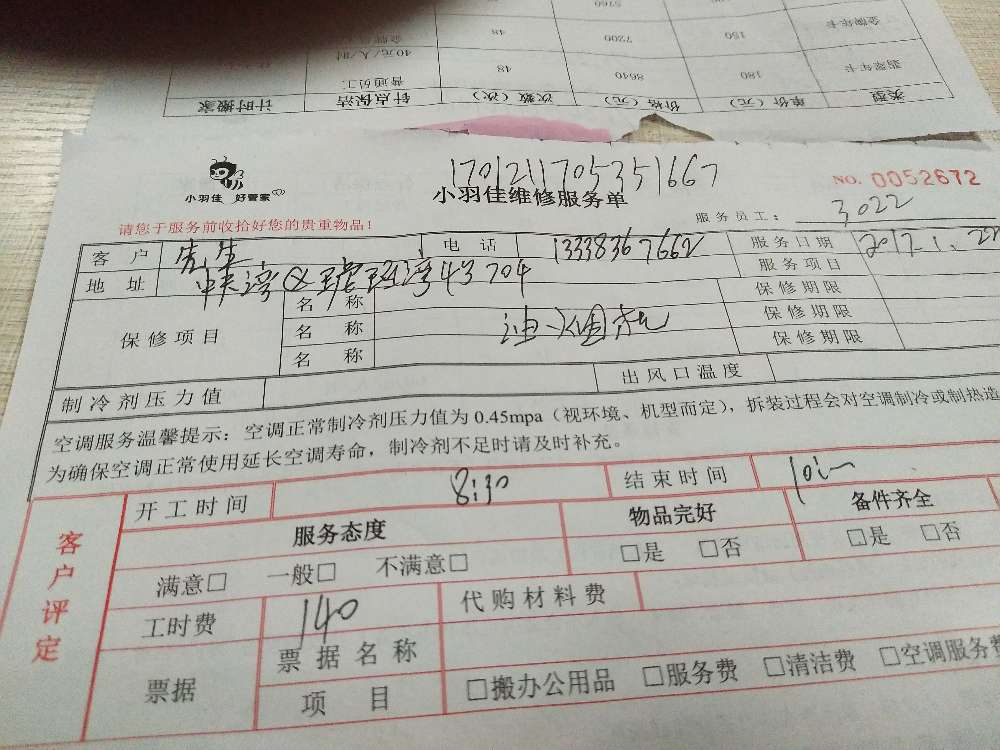 5760
金牌年卡 150 7200 48
40元/人/时
翡翠年卡 180 8640 48 普通员工
类型 单价(元) 价格(元) 次数(次) 针点保洁 计时搬家
1701211705351667
小羽佳 好管家
小羽佳维修服务单
NO. 0052672
请您于服务前收拾好您的贵重物品!
服务员工: 3022
客户 先生 电话 13338367662 服务日期 2017.1.22
地址 43 704 服务项目
保修项目 名称 保修期限
名称 油烟机 保修期限
名称 保修期限
制冷剂压力值 出风口温度
空调服务温馨提示:空调正常制冷剂压力值为 0.45mpa(视环境、机型而定),拆装过程会对空调制冷或制热造
为确保空调正常使用延长空调寿命,制冷剂不足时请及时补充。
客户评定
开工时间 8:30 结束时间
服务态度 物品完好 备件齐全
满意□ 一般□ 不满意□ □是 □否 □是 □否
工时费 140 代购材料费
票据 票据名称
项目 □搬办公用品 □服务费 □清洁费 □空调服务费